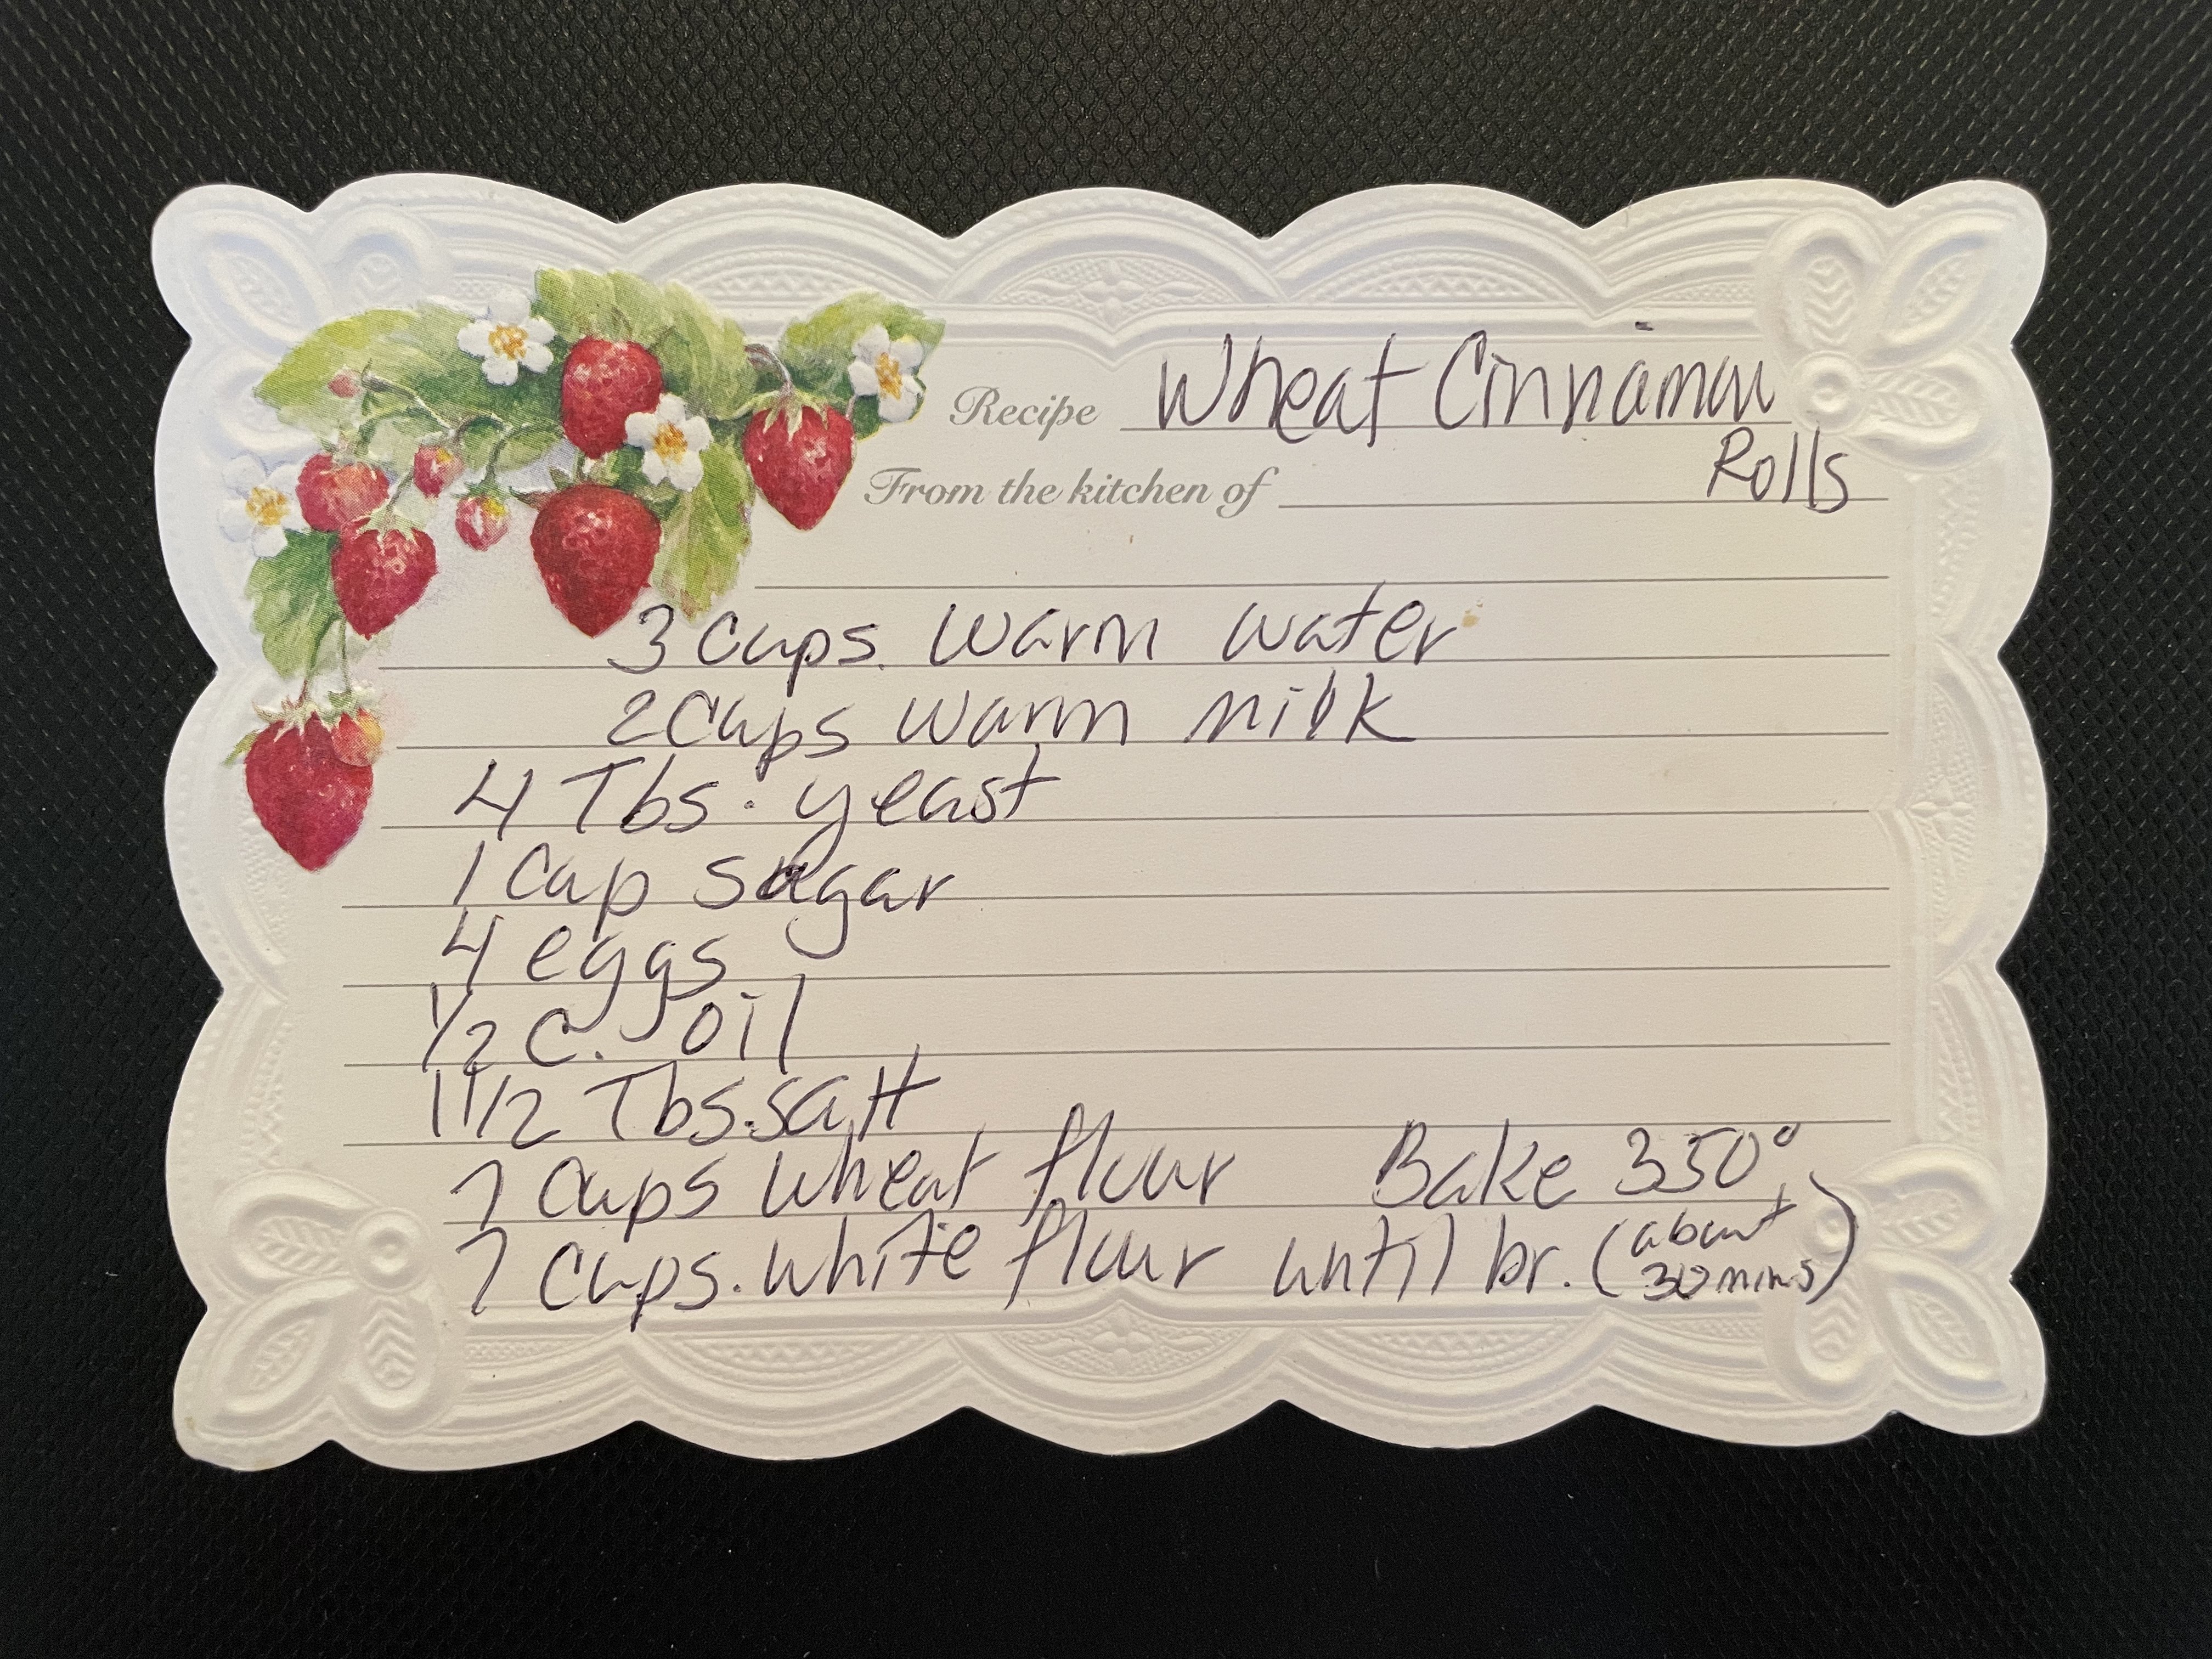 Recipe Wheat Cinnamon
Rolls
From the kitchen of
3 cups. warm water
2 cups warm milk
4 Tbs. yeast
1 cup sugar
4 eggs
1/2 c. oil
1 1/2 Tbs. salt
7 cups wheat flour Bake 350°
7 cups. white flour until br. (about
30 mins)